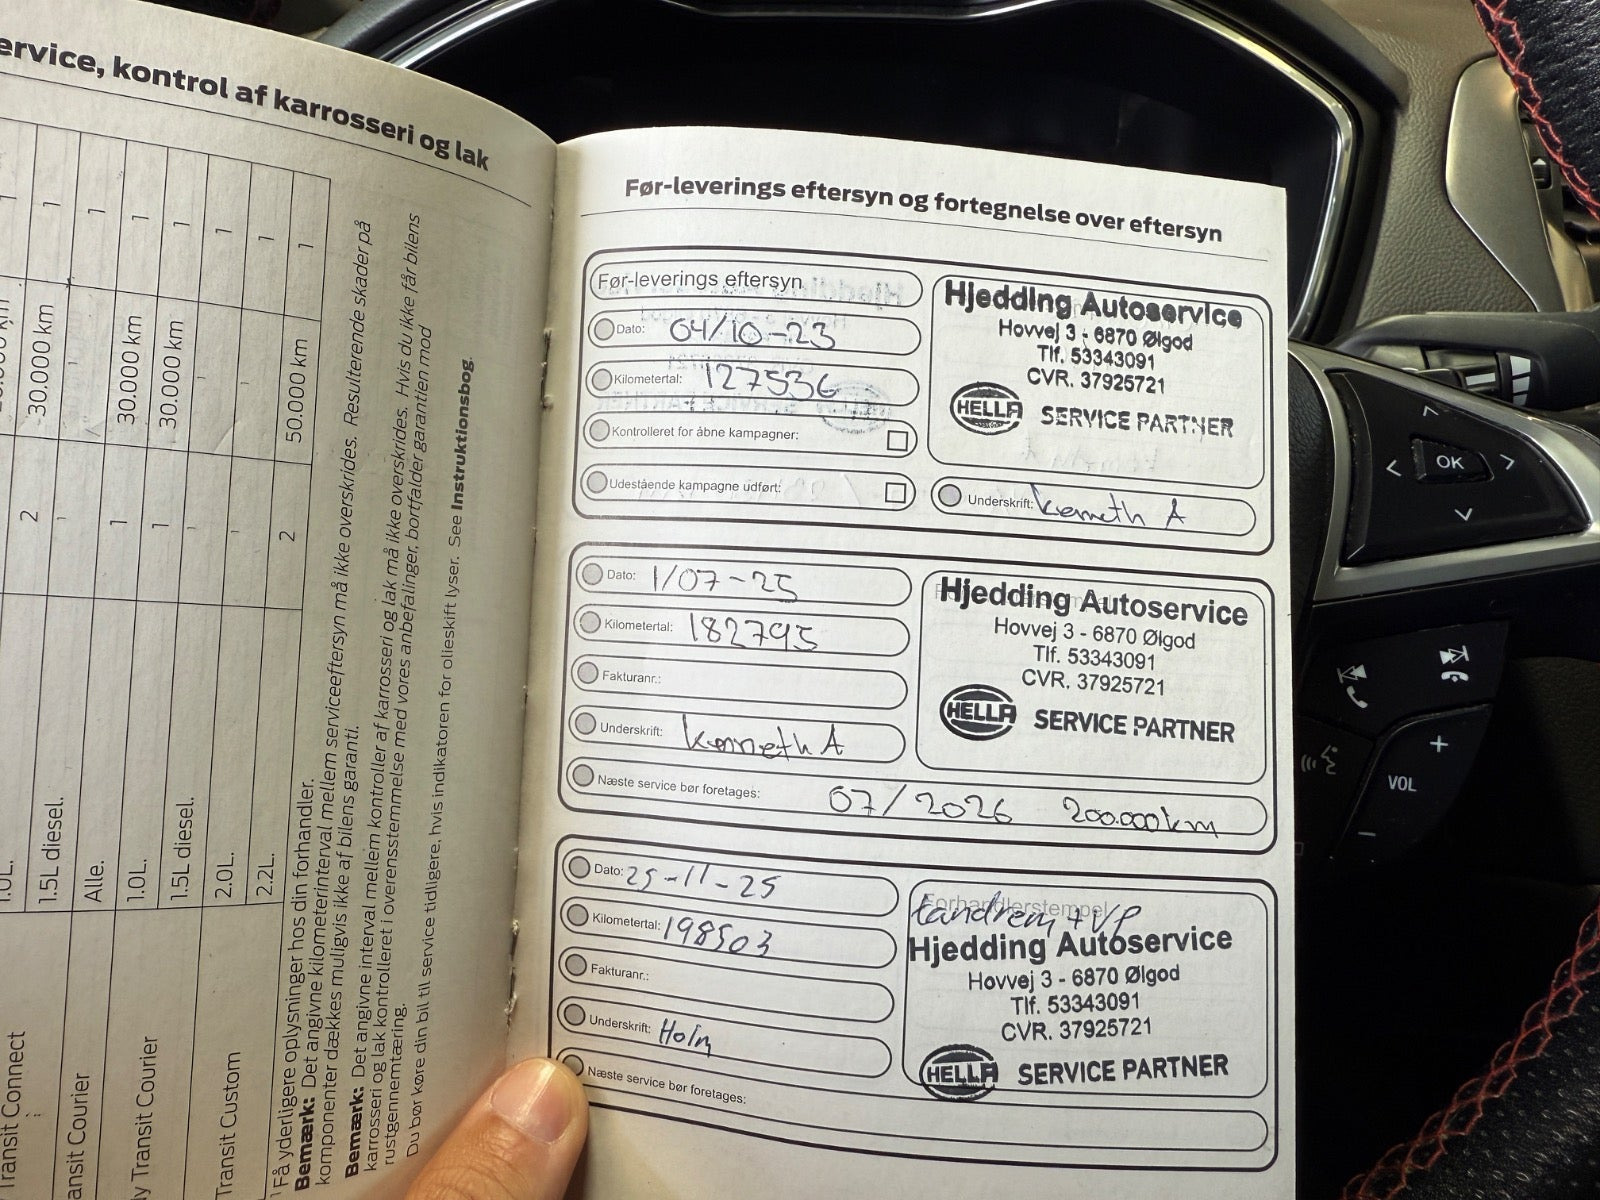 service, kontrol af karrosseri og lak
1
1
1
1
1
1
1
1
30.000 km
30.000 km
30.000 km
50.000 km
2
1
1
1
1
1
2
1.0L.
1.5L diesel.
Alle.
1.0L.
1.5L diesel.
2.0L.
2.2L.
Transit Connect
Transit Courier
Transit Courier
Transit Custom
¹ Få yderligere oplysninger hos din forhandler.
Bemærk: Det angivne kilometerinterval mellem serviceeftersyn må ikke overskrides. Resulterende skader på
komponenter dækkes muligvis ikke af bilens garanti.
Bemærk: Det angivne interval mellem kontroller af karrosseri og lak må ikke overskrides. Hvis du ikke får bilens
karrosseri og lak kontrolleret i overensstemmelse med vores anbefalinger, bortfalder garantien mod
rustgennemtæring.
Du bør køre din bil til service tidligere, hvis indikatoren for olieskift lyser. See Instruktionsbog.
Før-leverings eftersyn og fortegnelse over eftersyn
Før-leverings eftersyn
Dato: 04/10-23
Kilometertal: 127536
Kontrolleret for åbne kampagner:
Udestående kampagne udført:
Hjedding Autoservice
Hovvej 3 - 6870 Ølgod
Tlf. 53343091
CVR. 37925721
HELLA SERVICE PARTNER
Underskrift: Kenneth A
Dato: 1/07-25
Kilometertal: 182795
Fakturanr.:
Underskrift: Kenneth A
Hjedding Autoservice
Hovvej 3 - 6870 Ølgod
Tlf. 53343091
CVR. 37925721
HELLA SERVICE PARTNER
Næste service bør foretages: 07/2026 200.000km
Dato: 25-11-25
Kilometertal: 198503
Fakturanr.:
Underskrift: Holm
Forhandlerstempel
tandrem + VP
Hjedding Autoservice
Hovvej 3 - 6870 Ølgod
Tlf. 53343091
CVR. 37925721
HELLA SERVICE PARTNER
Næste service bør foretages:
OK
VOL
+
-